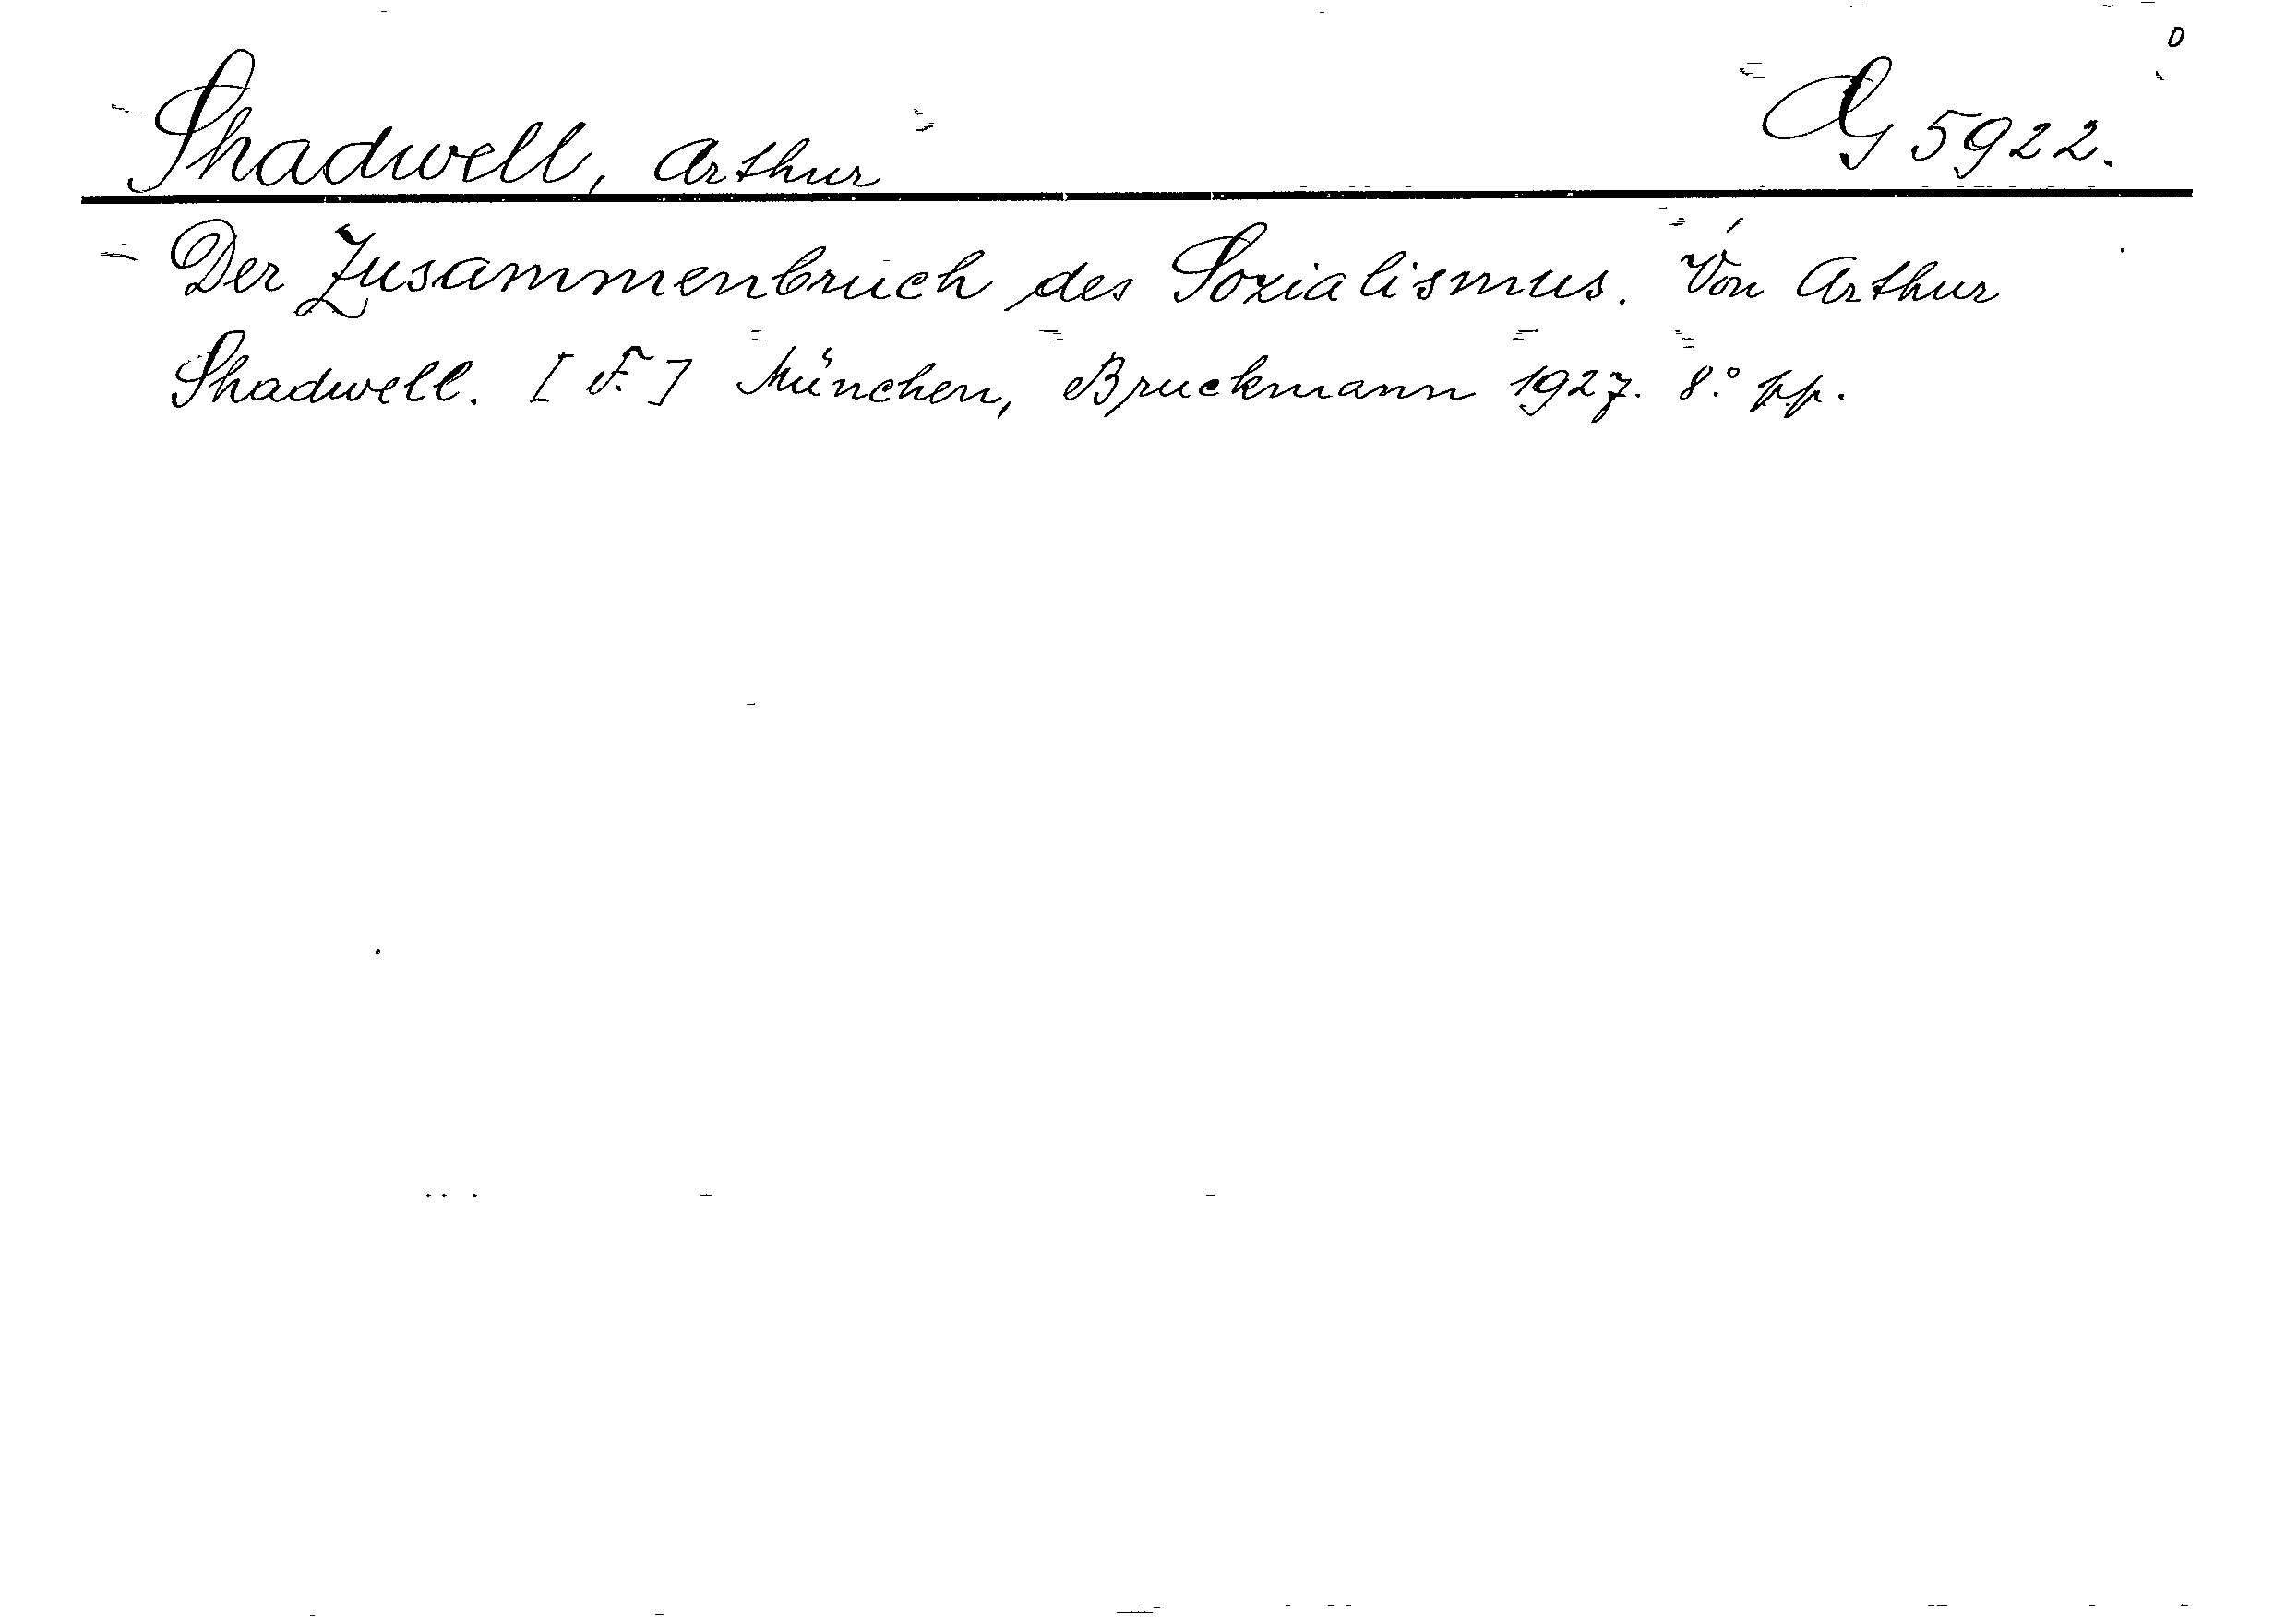 Shadwell, Arthur G 5922.
Der Zusammenbruch des Sozialismus. Von Arthur
Shadwell. [F.] München, Bruckmann 1927. 8.° pp.